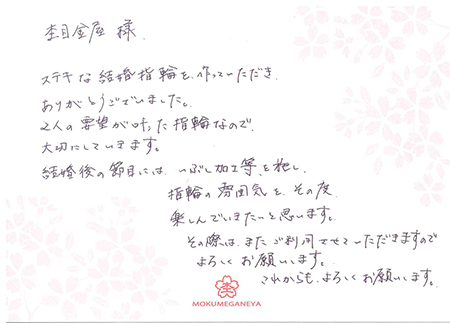 杢目金屋 様
ステキな結婚指輪を、作っていただき
ありがとうございました。
2人の要望が叶った指輪なので、
大切にしていきます。
結婚後の節目には、いぶし加工等を施し、
指輪の雰囲気を、その度、
楽しんでいきたいと思います。
その際は、またご利用させていただきますので
よろしくお願いします。
これからも、よろしくお願いします。
MOKUMEGANEYA